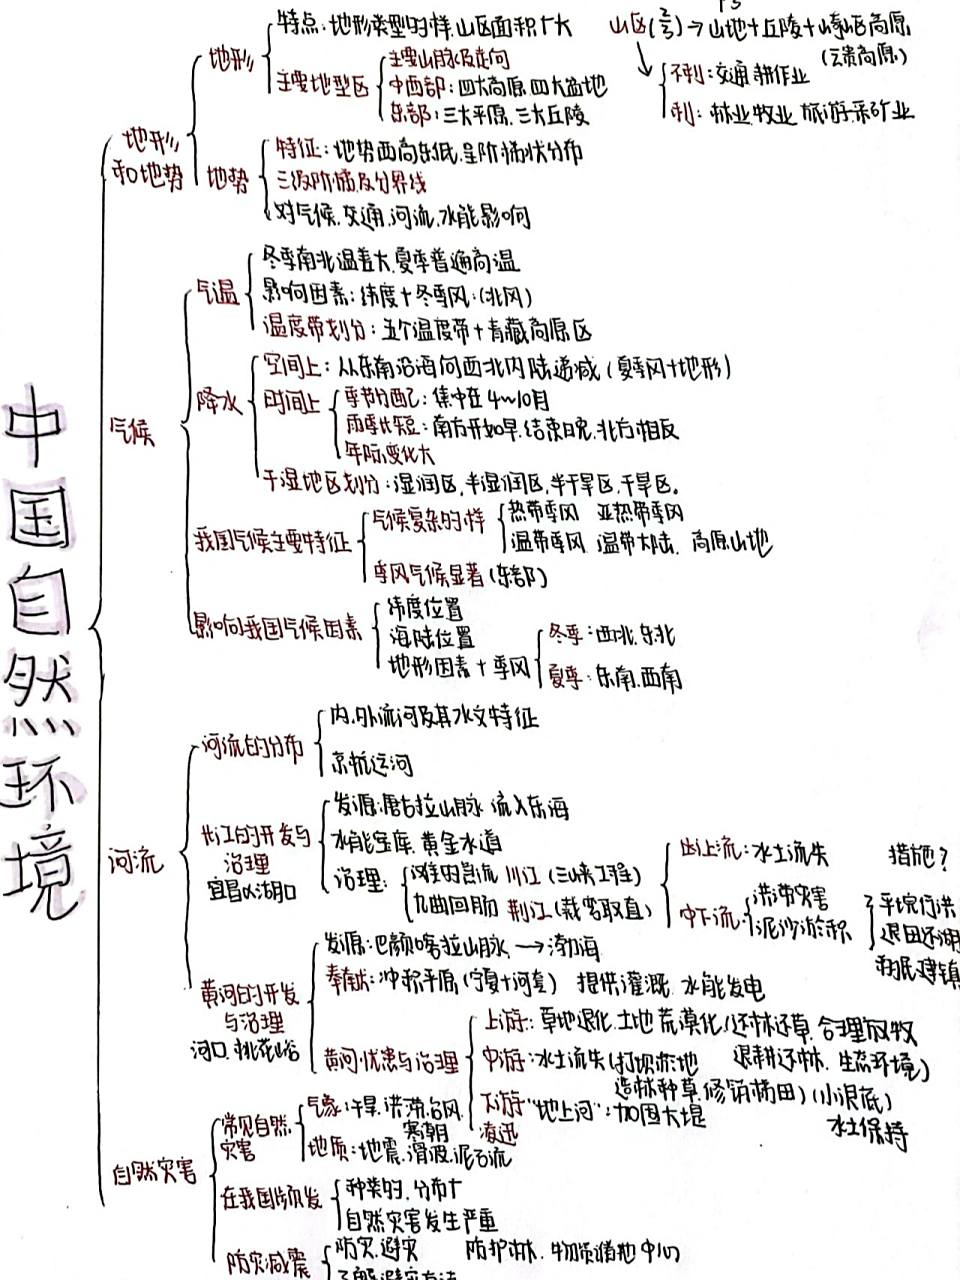 中国自然环境
地形和地势
地形
特点：地形类型多样，山区面积广大
山区(2/3)→山地+丘陵+崎岖高原
(云贵高原)
不利：交通 耕作业
利：林业牧业 旅游采矿业
主要地型区
主要山脉及走向
中西部：四大高原 四大盆地
东部：三大平原、三大丘陵
地势
特征：地势西高东低，呈阶梯状分布
三级阶梯及分界线
对气候、交通、河流、水能影响
气候
气温
冬季南北温差大，夏季普遍高温
影响因素：纬度+冬季风：(北风)
温度带划分：五个温度带+青藏高原区
降水
空间上：从东南沿海向西北内陆递减(夏季风+地形)
时间上
季节分配：集中在4~10月
雨季长短：南方开始早，结束晚，北方相反
年际变化大
干湿地区划分：湿润区，半湿润区，半干旱区，干旱区。
我国气候主要特征
气候复杂多样
热带季风 亚热带季风
温带季风 温带大陆、高原山地
季风气候显著(东部)
影响我国气候因素
纬度位置
海陆位置
地形因素+季风
冬季：西北、东北
夏季：东南、西南
河流
河流的分布
内、外流河及其水文特征
京杭运河
长江的开发与治理
宜昌 湖口
发源：唐古拉山脉 流入东海
水能宝库，黄金水道
治理：
滩多急流 川江(三峡工程)
九曲回肠 荆江(裁弯取直)
上流：水土流失 措施？
中下流：
洪涝灾害
泥沙淤积
平垸行洪
退田还湖
移民建镇
黄河的开发与治理
河口、桃花峪
发源：巴颜喀拉山脉，→渤海
奉献：冲积平原(宁夏+河套) 提供灌溉、水能发电
黄河忧患与治理
上游：草地退化、土地荒漠化(还林还草，合理放牧
中游：水土流失(打坝淤地 退耕还林、生态环境)
造林种草，修销梯田)(小浪底)
下游“地上河”：加固大堤
凌迅
水土保持
自然灾害
常见自然灾害
气象：干旱、洪涝、台风、
寒朝
地质：地震、滑波、泥石流
在我国频发
种类多，分布广
自然灾害发生严重
防灾减震
防灾、避灾 防护林、物质储地中心
了解避灾方法